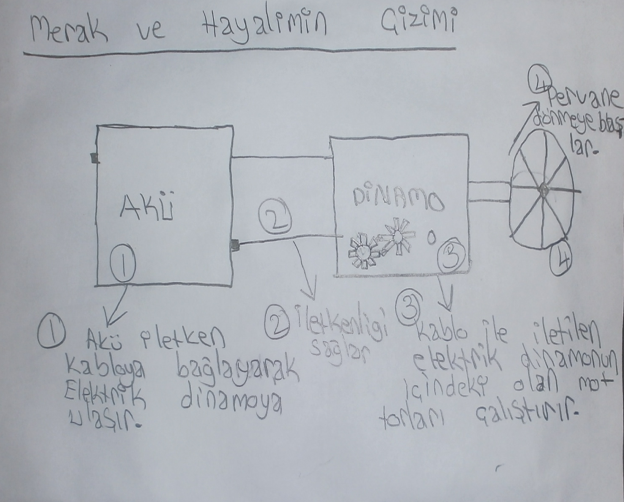 Merak ve Hayalimin Çizimi
4
Pervane
dönmeye baş
lar.
AKÜ
1
2
DİNAMO
3
4
1 Akü iletken
kabloya bağlayarak
Elektrik dinamoya
ulaşır.
2 iletkenligi
sağlar
3 kablo ile iletilen
elektrik dinamonun
içindeki olan mot
torları çalıştırır.